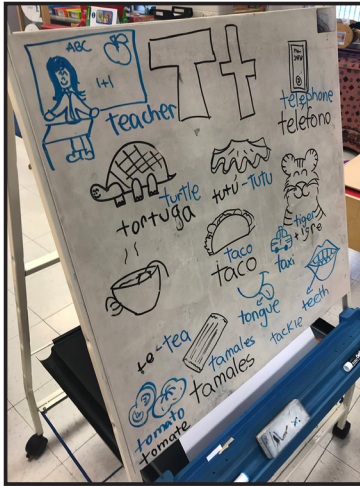 ABC
1+1
Tt
teacher
telephone
teléfono
turtle
tortuga
tutú-Tutu
tiger
tigre
taco
taco
taxi
té-tea
tongue
teeth
tamales
tamales
tackle
tomato
tomate